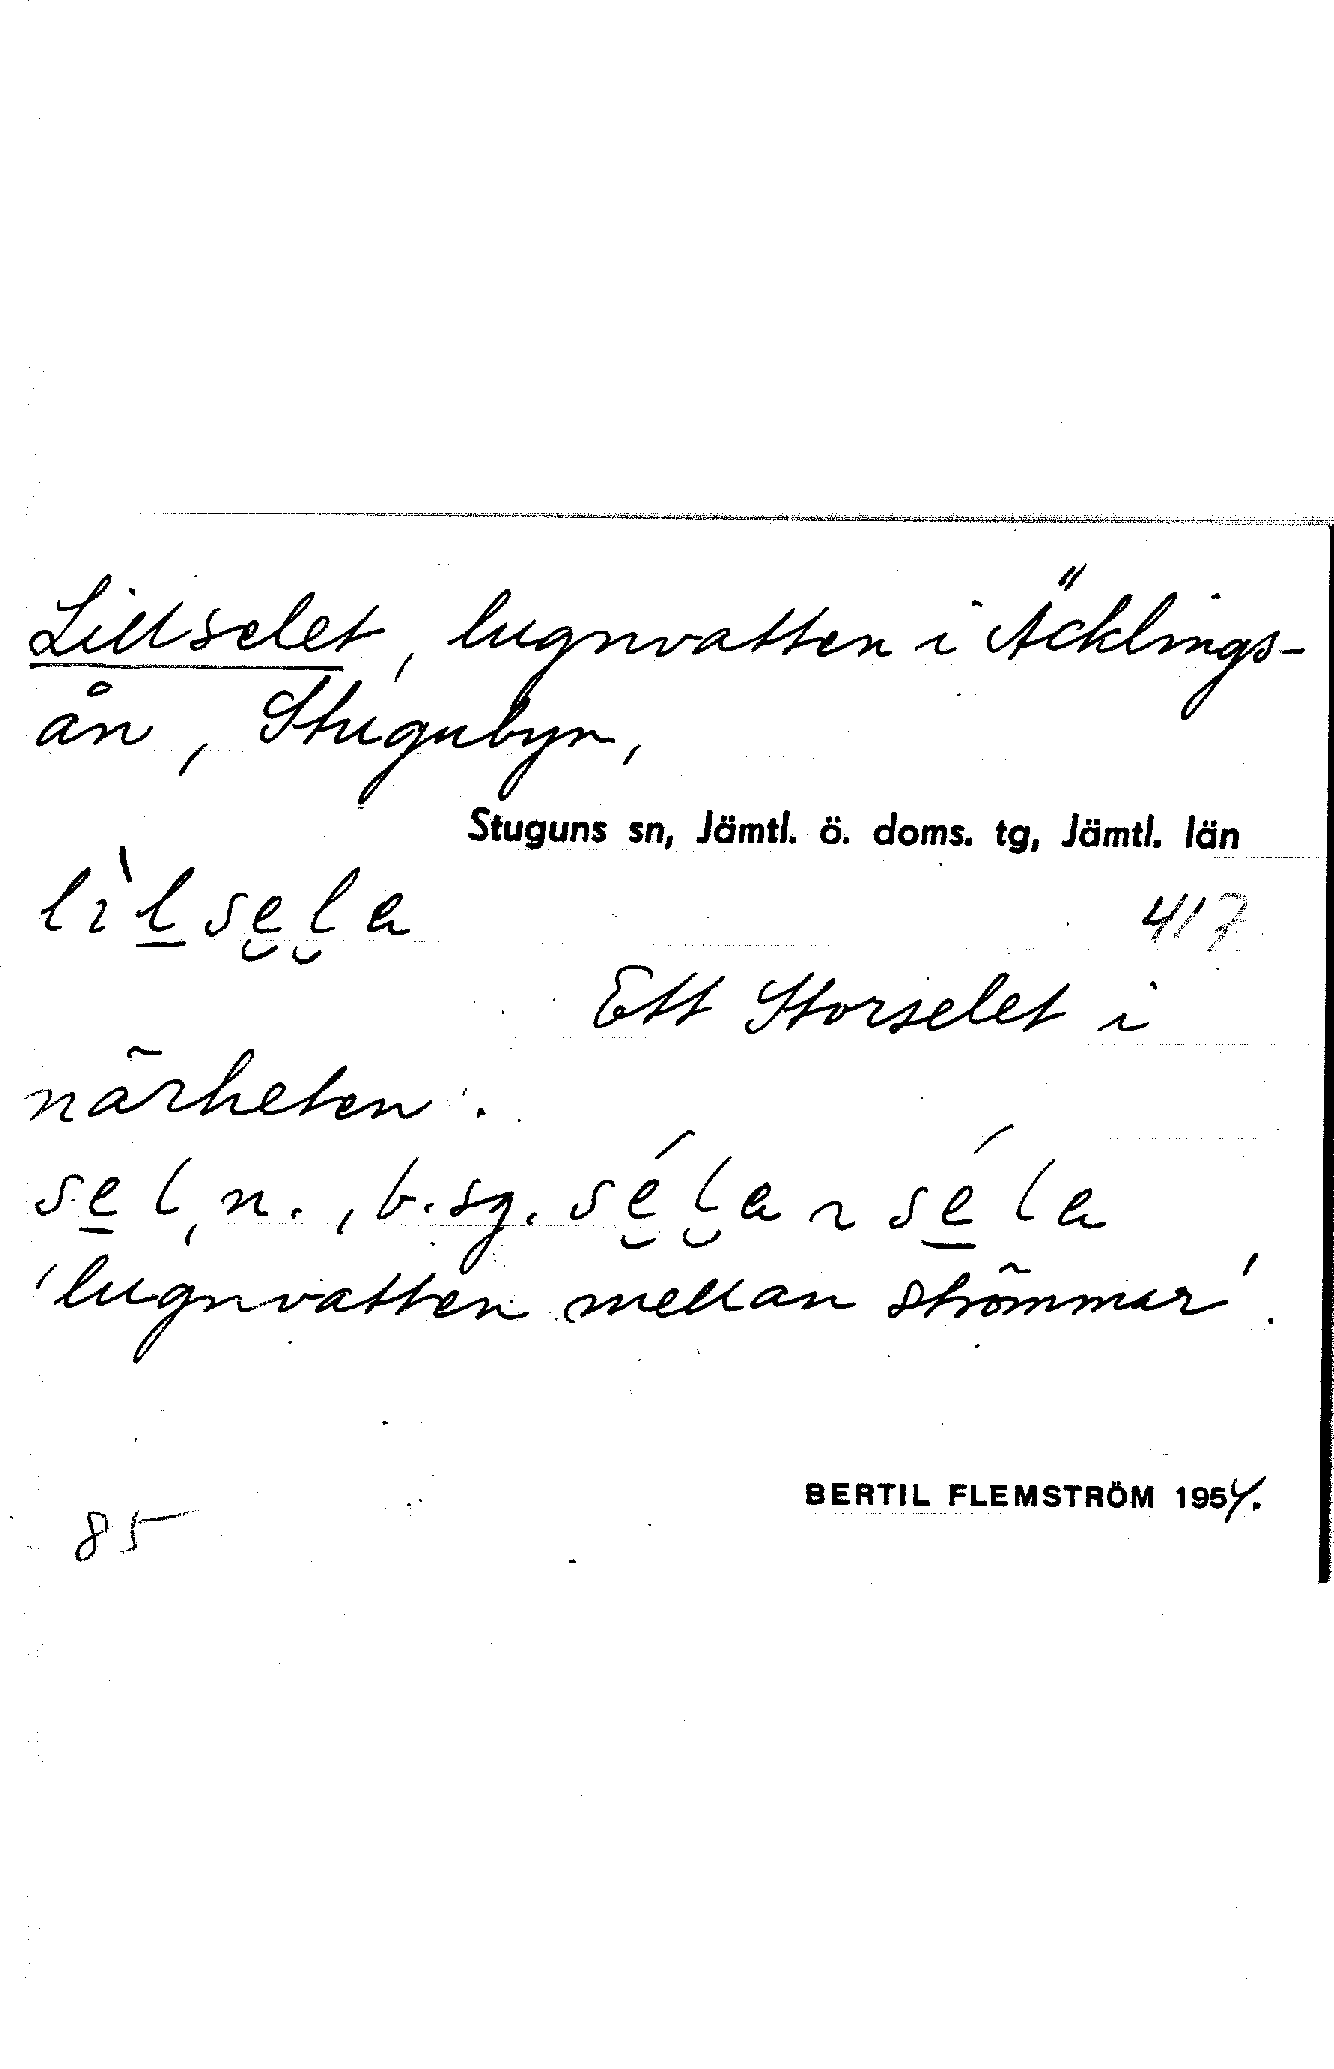 Lillselet, lugnvatten i Äcklings-
ån, Stugubyn,
Stuguns sn, Jämtl. ö. doms. tg, Jämtl. län
lìl̲se̮l̮a
417
Ett Storselet i
närheten.
se̲l, n., b. sg. sé̮l̮a ~ sé̲la
'lugnvatten mellan strömmar'.
BERTIL FLEMSTRÖM 1954.
85